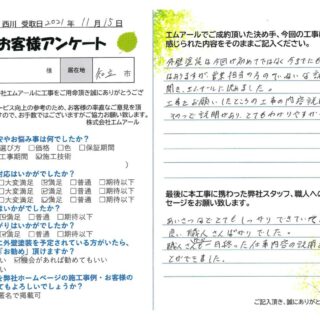 西川 受取日2021年11月15日
お客様アンケート
様 居住地 市
社エムアールに工事をご用命頂き誠にありがとうござ
ービス向上の参考のため、お客様の率直なご意見を頂
すので、お手数ではございますがご協力お願い致します。
株式会社エムアール
安やお悩み事は何でしたか？
選び方 □価格 □色 □保証期間
工事期間 ☑施工技術
対応はいかがでしたか？
□大変満足 ☑満足 □普通 □期待以下
はいかがでしたか？
□大変満足 ☑満足 □普通 □期待以下
りはいかがでしたか？
□大変満足 ☑満足 □普通 □期待以下
に外壁塗装を予定されている方がいたら、
「お勧め」頂けますか？
い ☑機会があれば勧めてもいい
い
を弊社ホームページの施工事例・お客様の
てもよろしいでしょうか？
匿名で掲載可
エムアールでご成約頂いた決め手、今回の工事に
感じられた内容をそのままご記入ください。
外壁塗装は今回が初めてではなく
はありますが、営業担当の
聞き、エムアールに決めました。
工事をお願いしたところの工事の内容説
つった説明がありとてもわかりやす
最後に本工事に携わった弊社スタッフ、職人への
セージをお願い致します。
あいさつなどとてもしっかりできていて
良い職人さんばかりでした。
職人さんも一日終った仕事内容の説明
とができました。
ご記入頂き、誠にありがと